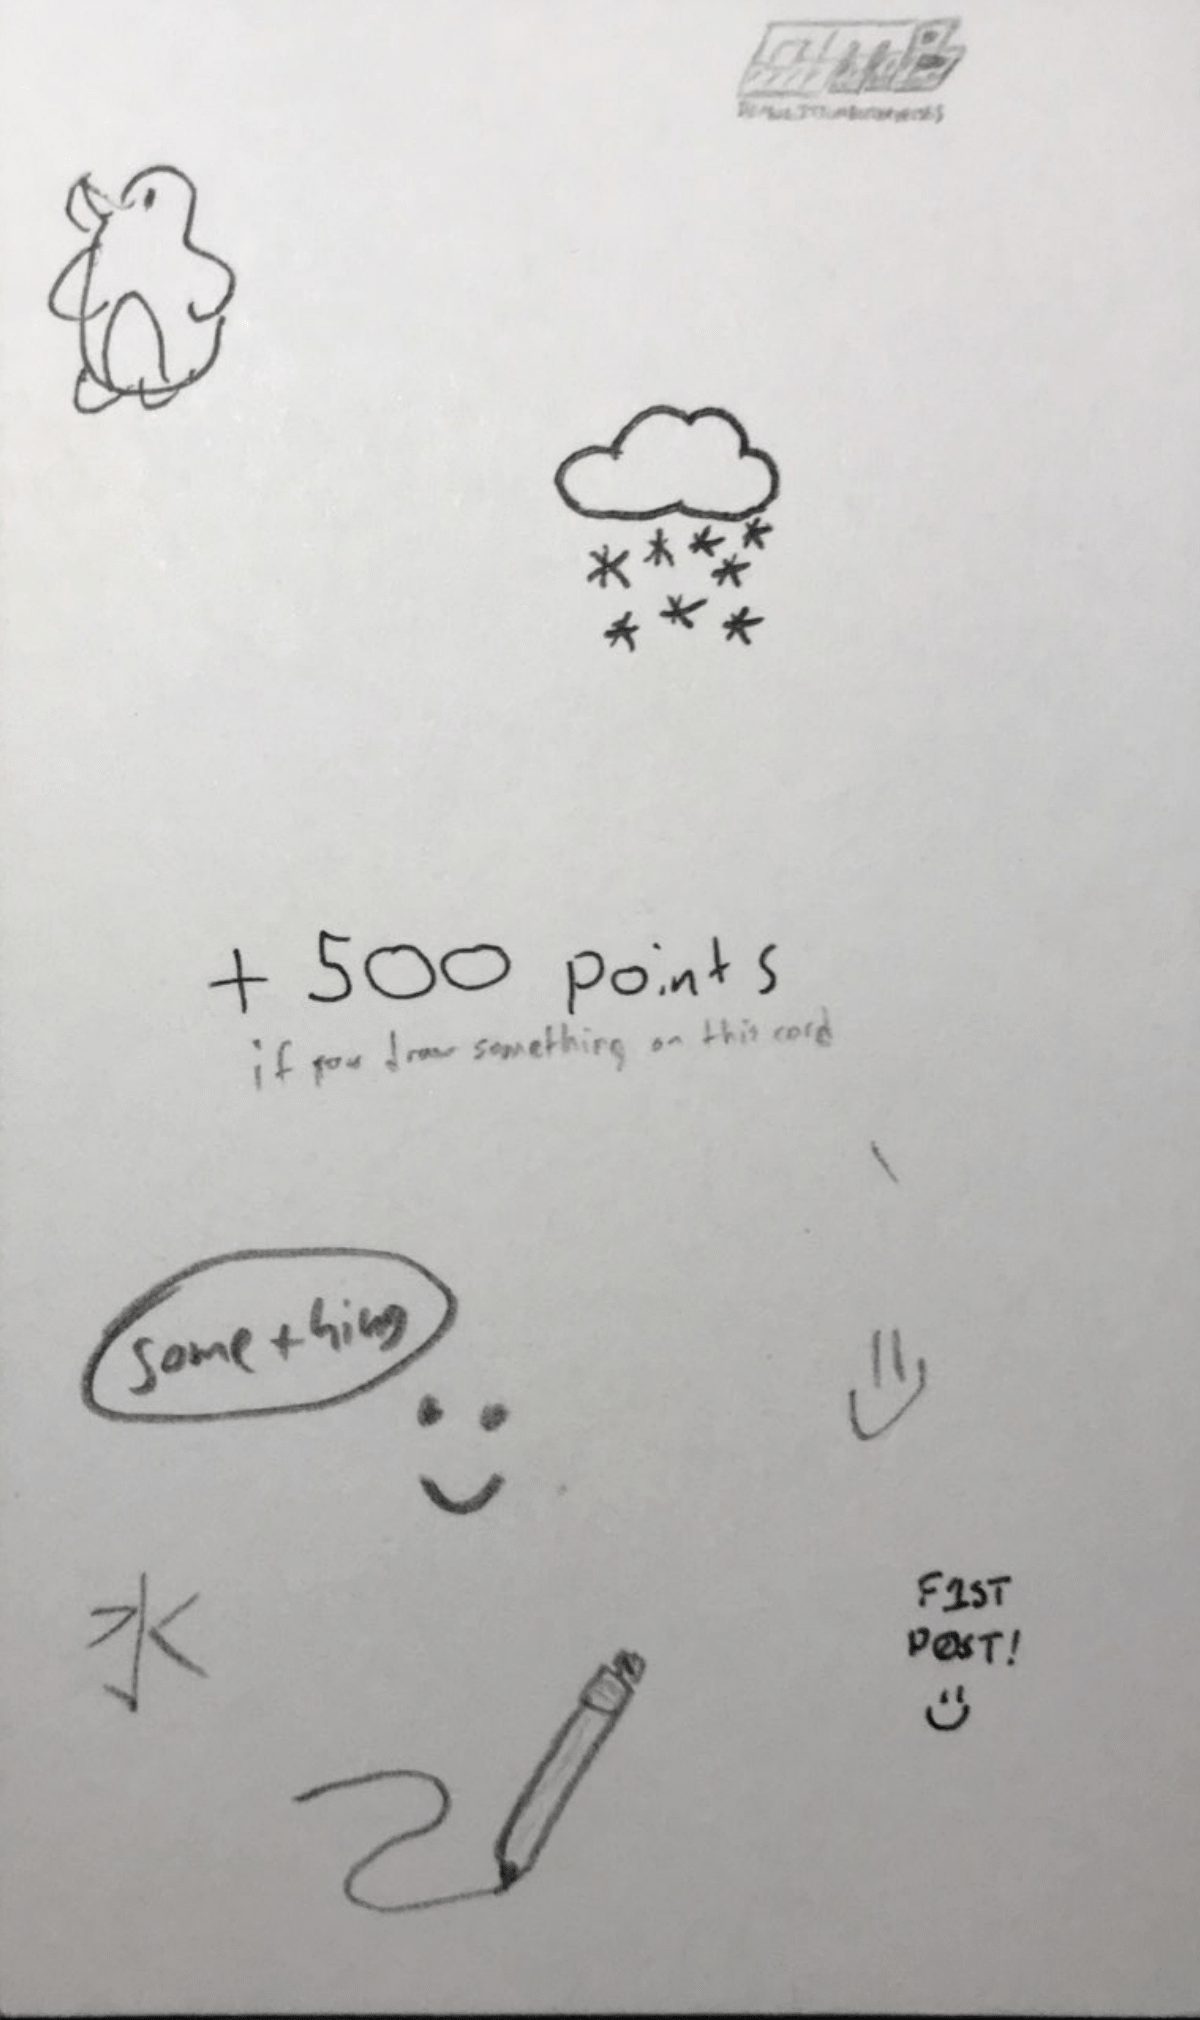 + 500 points
if you draw something on this card
something
水
F1ST
PØST!